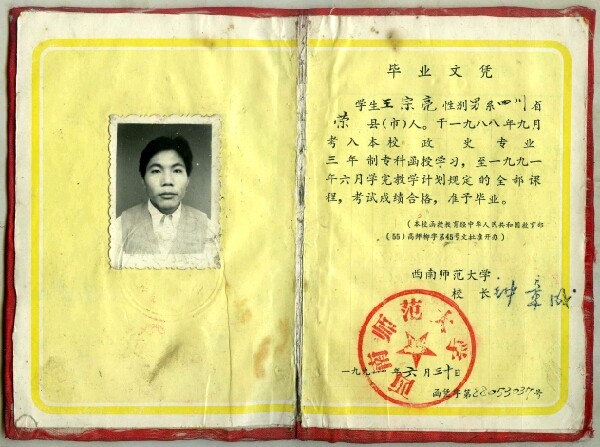 毕业文凭
学生王宗亮性别男系四川省
荣县(市)人。于一九八八年九月
考入本校政史专业
三年制专科函授学习,至一九九一
年六月学完教学计划规定的全部课
程,考试成绩合格,准予毕业。
(本校函授教育经中华人民共和国教育部
(55)高师柳字第45号文批准开办)
西南师范大学
校长钟章成
西南师范大学
一九九一年六月三十日
函凭字第88053037号